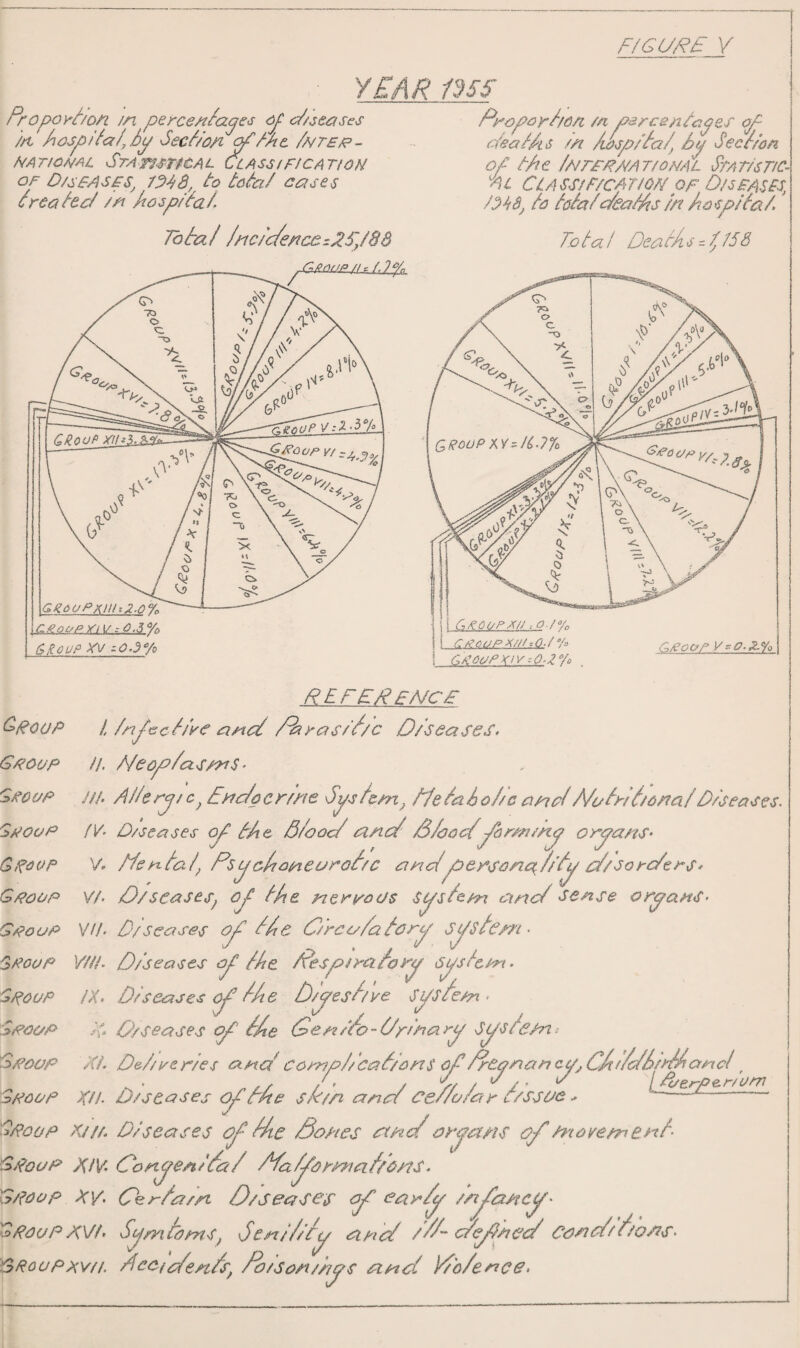 FIGURE V
YEAR 1955
Proportion in percentages of diseases
in hospital, by Section of the INTER-
NATIONAL STATISTICAL CLASSIFICATION
OF DISEASES, 1948, to total cases
treated in hospital.
Total Incidence=25,188
Proportion in percentages of
deaths in hospital, by Section
of the INTERNATIONAL STATISTIC-
AL CLASSIFICATION OF DISEASES,
1948, to total deaths in hospital.
Total Deaths=1,158
GROUP I=5.7%
GROUP II=1.7%
GROUP III=4.2%
GROUP IV=8.1%
GROUP V=2.3%
GROUP VI=4.9%
GROUP VII=4.7%
GROUP VIII=6.4%
GROUP IX=11.0%
GROUP X=4.8%
GROUP XI=17.3%
GROUP XII=3.8%
GROUP XIII=2.0%
GROUP XIV=0.3%
GROUP XV=0.3%
GROUP XVI=7.8%
GROUP XVII=13.9%
GROUP I=10.6%
GROUP II=2.3%
GROUP III=5.6%
GROUP IV=3.1%
GROUP V=0.2%
GROUP VI=7.8%
GROUP VII=12.2%
GROUP VIII=7.2%
GROUP IX=12.3%
GROUP X=2.2%
GROUP XI=3.3%
GROUP XII=0.1%
GROUP XIII=0.1%
GROUP XIV=0.2%
GROUP XV=16.7%
GROUP XVI=5.2%
GROUP XVII=11.0%
REFERENCE
GROUP I. Infective and Parasitic Diseases.
GROUP II. Neoplasms.
GROUP III. Allergic, Endocrine System, Metabolic and Nutritional Diseases.
GROUP IV. Diseases of the Blood and Blood forming organs.
GROUP V. Mental, Psychoneurotic and personality disorders.
GROUP VI. Diseases, of the nervous system and sense organs.
GROUP VII. Diseases of the Circulatory system.
GROUP VIII. Diseases of the Respiratory system.
GROUP IX. Diseases of the Digestive system.
GROUP X. Diseases of the Genito-Urinary system.
GROUP XI. Deliveries and complications of Pregnancy, Childbirth and
Puerperium
GROUP XII. Diseases of the skin and cellular tissue.
GROUP XIII. Diseases of the Bones and organs of movement.
GROUP XIV. Congenital Malformations.
GROUP XV. Certain Diseases of early infancy.
GROUP XVI. Symtoms, Senility and ill-defined conditions.
GROUP XVII. Accidents, Poisonings and Violence.